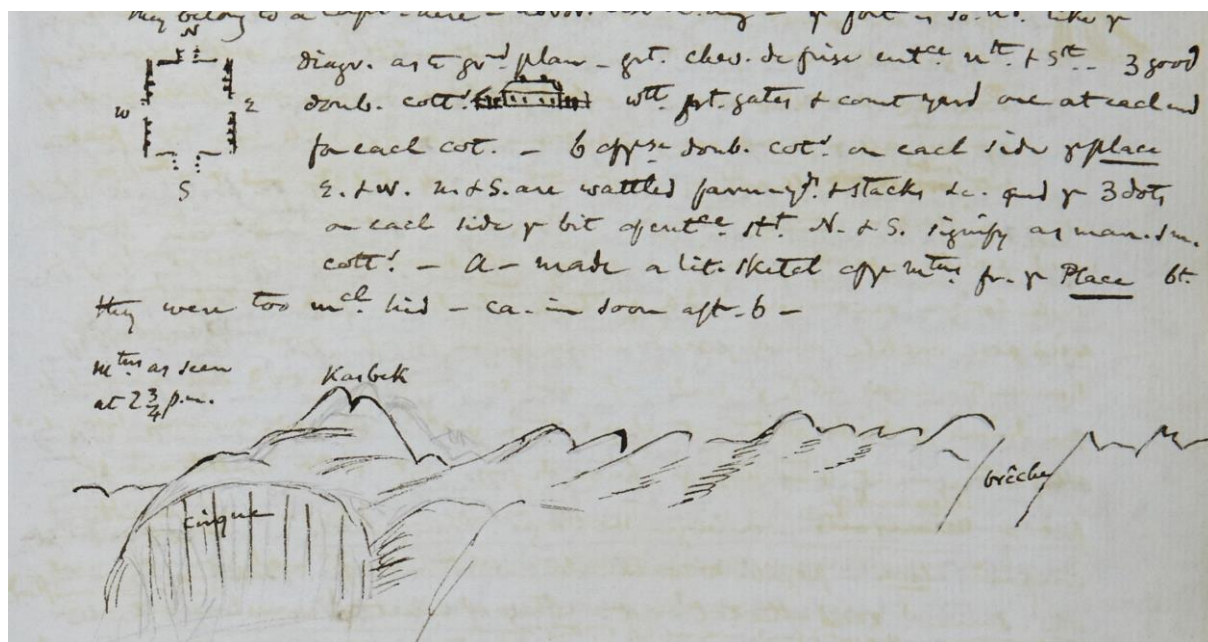 they belong to a
N
diagr. as to grd plan – grt. chev. de frise entce nth. + Sth. – 3 good
W
E
doub. cotts. wth. grt. gates + court yard one at each end
for each cot. – 6 doub. cots. on each side yr place
S
E. + W. N + S. are wattled farmyds. + stacks &c. and yr 3 dots
on each side yr bit of entce st. N. + S. signify as many sm.
cotts. – A – made a lit. sketch of ye mtns fr. yr Place bt.
they were too mch. hid – ca. in soon aft. 6 –
mtns as seen
at 2 3/4 p.m.
Kasbek
cirque
brêche